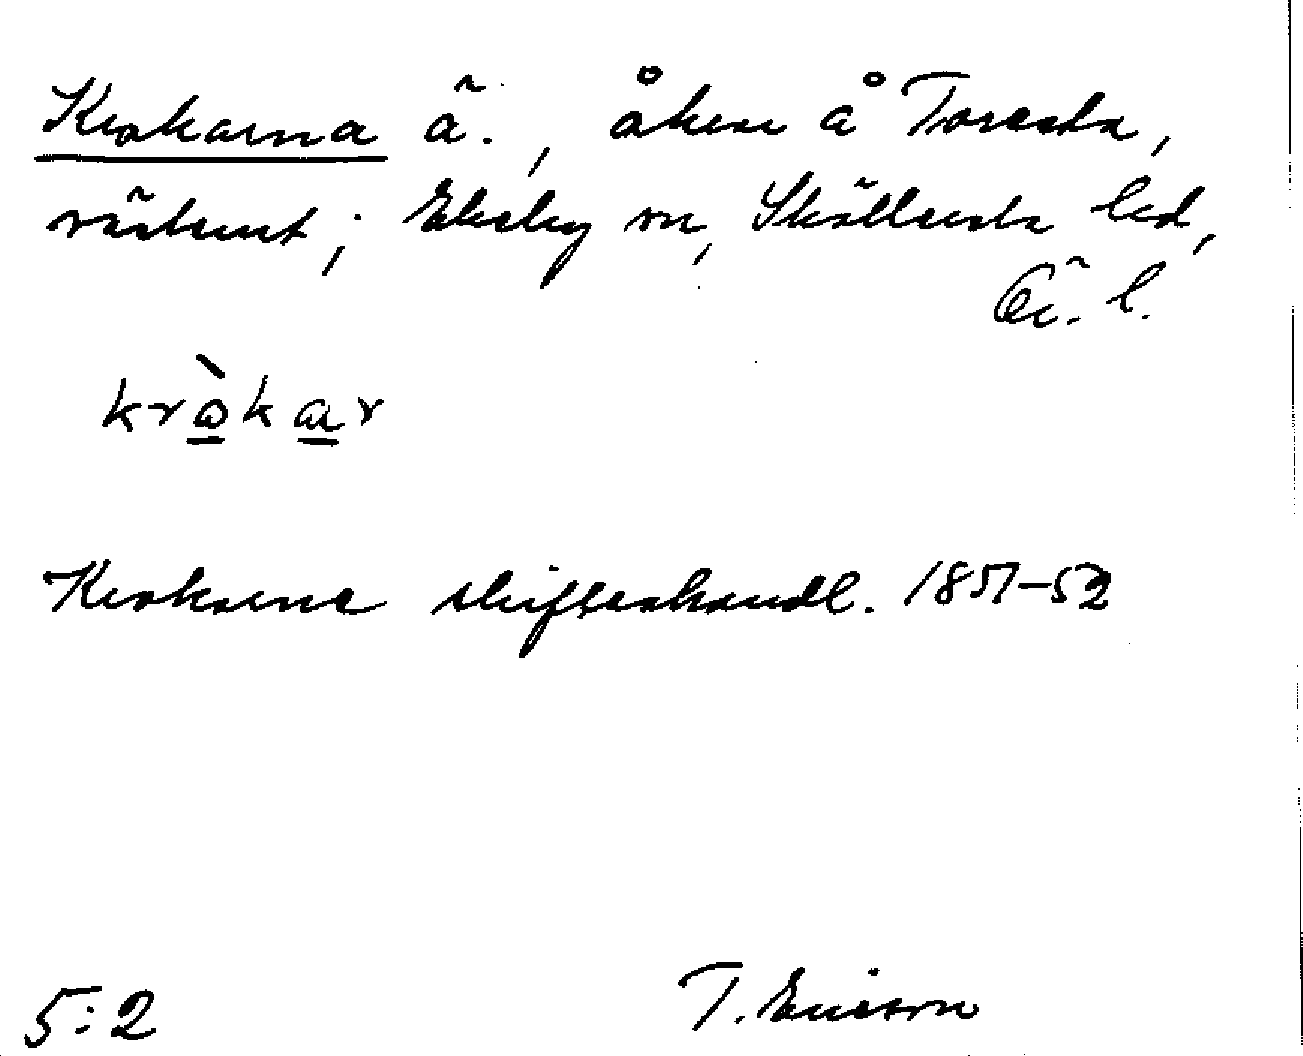 Krokarna ä., åkrar å Toresta,
västerut; Ekeby sn, Sköllersta hd,
Ör. l.
kròkar
Krokarne skifteshandl. 1851–52
5:2 T. Ericson